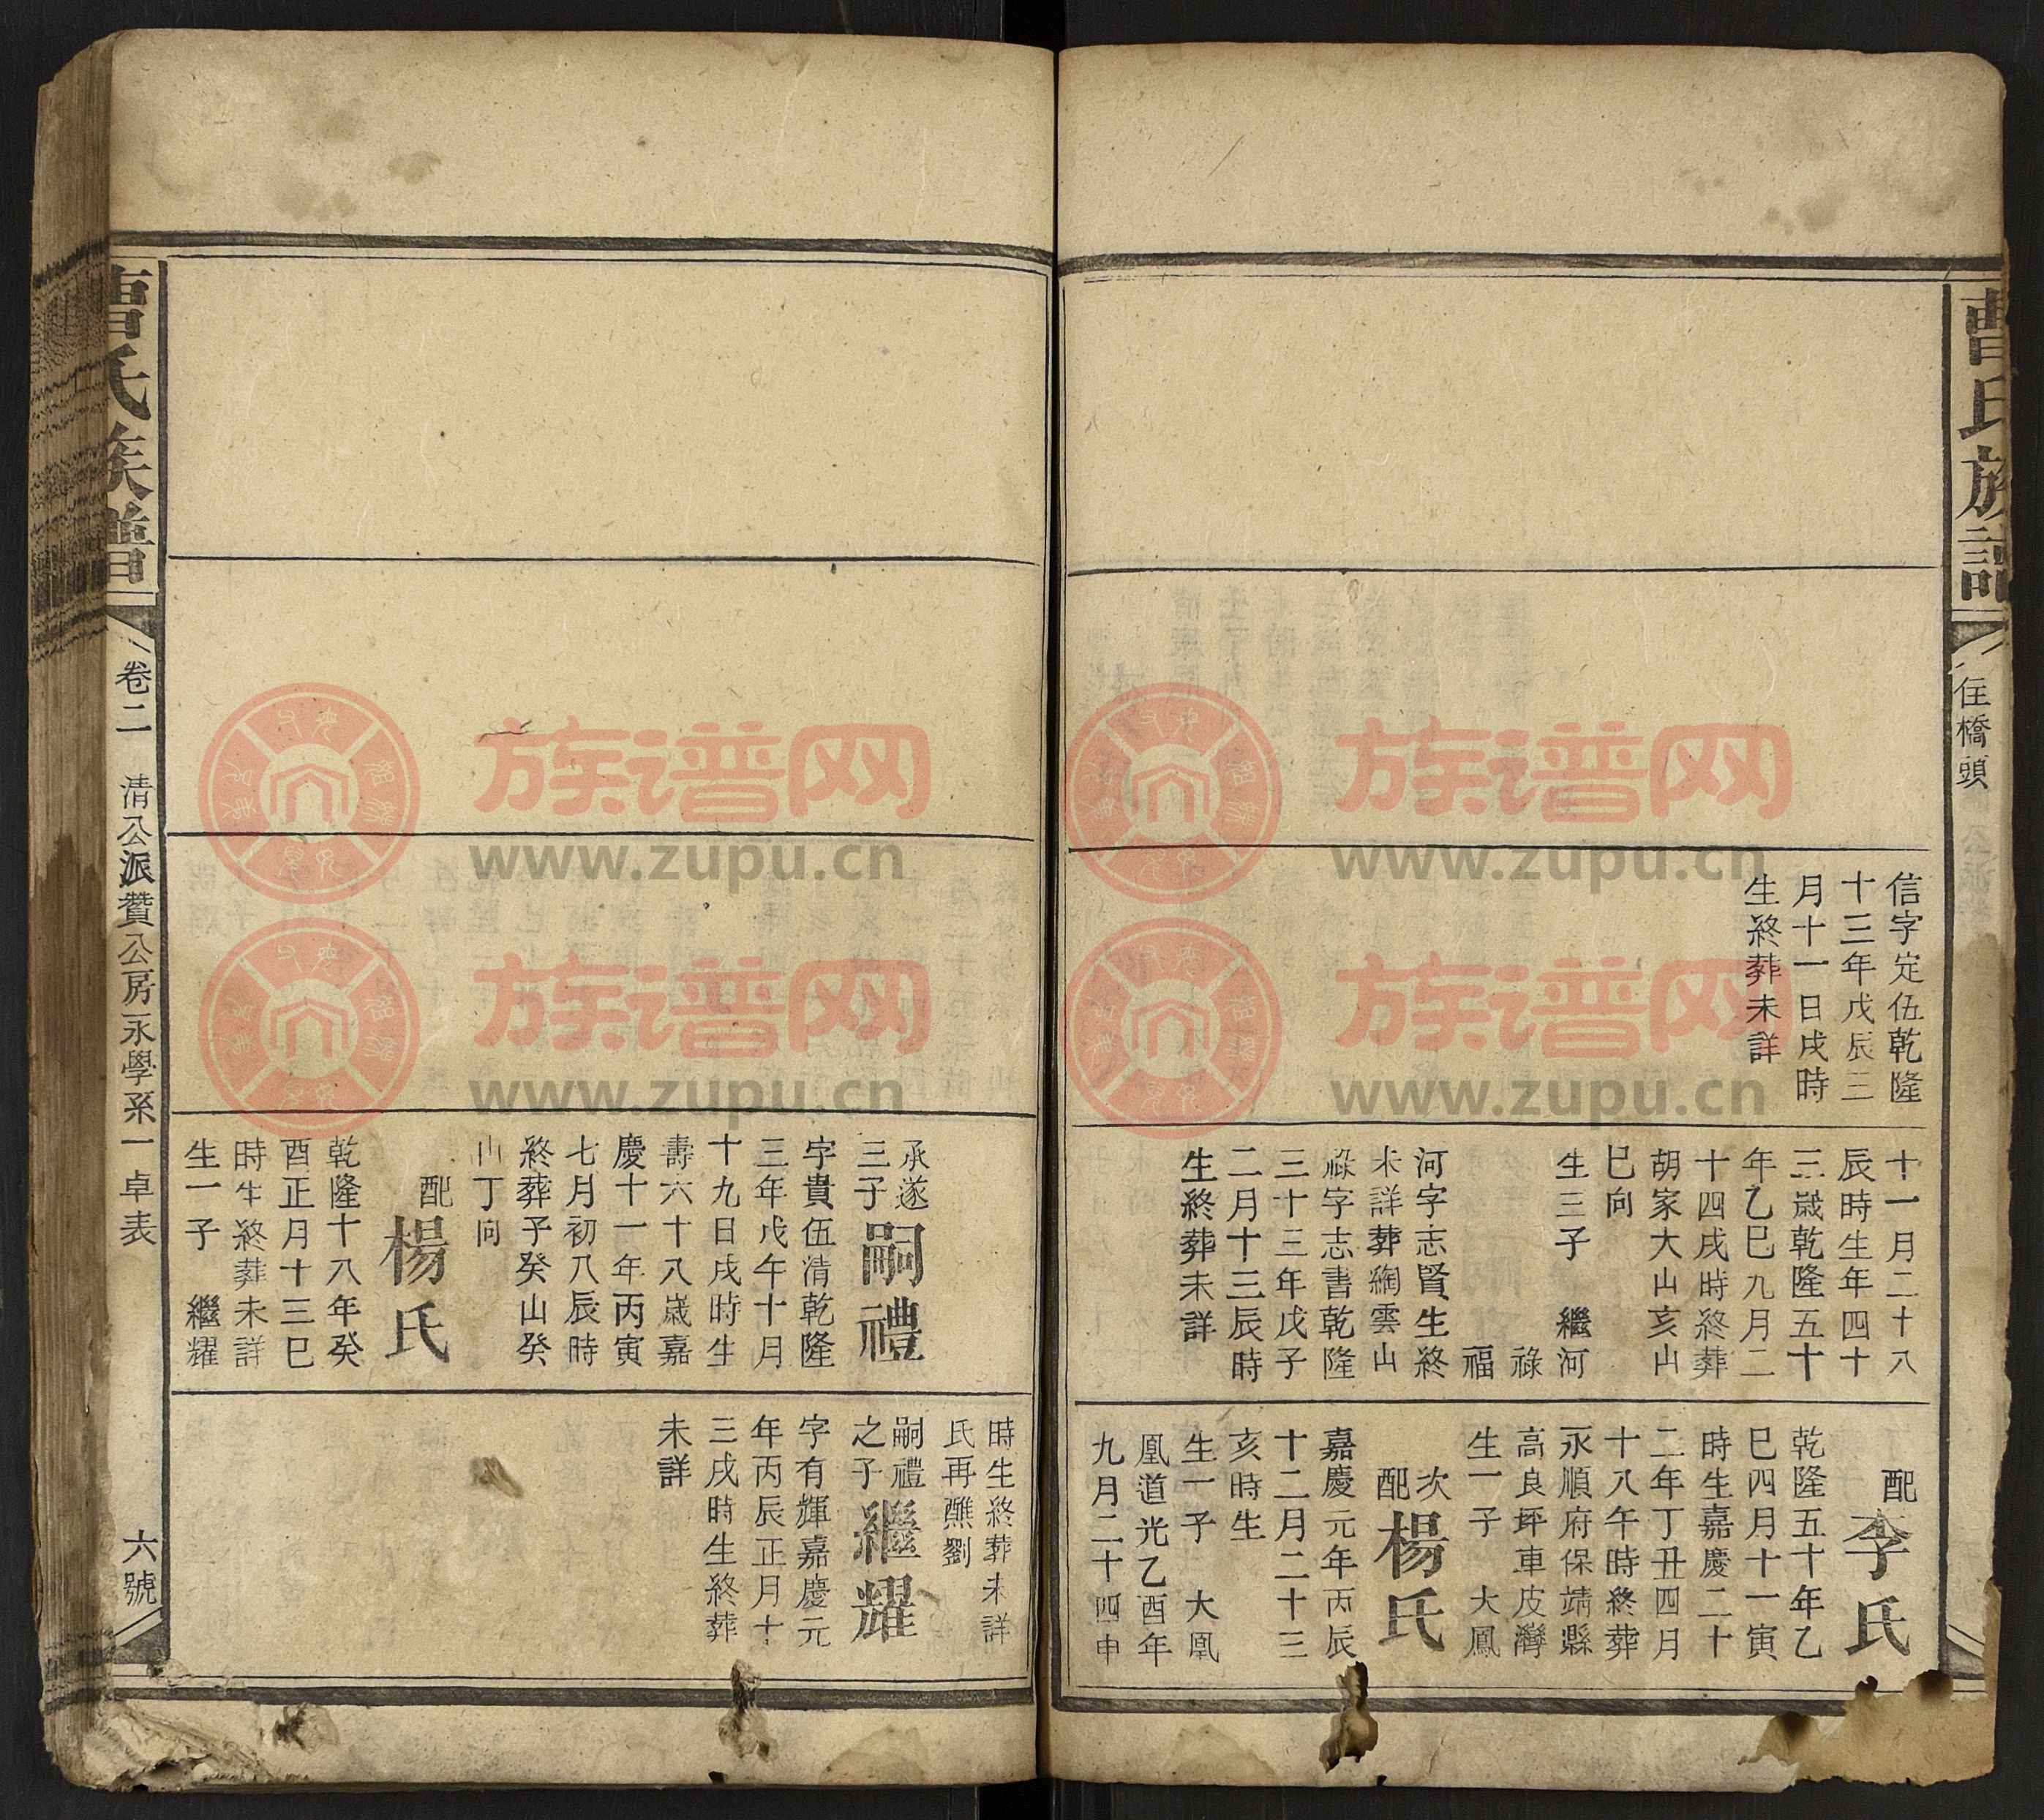 曹氏族譜
住橋頭
信字定伍乾隆
十三年戊辰三
月十一日戌時
生終葬未詳
十一月二十八
辰時生年四十
三歲乾隆五十
年乙巳九月二
十四戌時終葬
胡家大山亥山
巳向
生三子 繼河
祿
福
河字志賢生終
未詳葬綱雲山
祿字志書乾隆
三十三年戊子
二月十三辰時
生終葬未詳
配李氏
乾隆五十年乙
巳四月十一寅
時生嘉慶二十
二年丁丑四月
十八午時終葬
永順府保靖縣
高良坪車皮灣
生一子 大鳳
次配楊氏
嘉慶元年丙辰
十二月二十三
亥時生
生一子 大凰
凰道光乙酉年
九月二十四申
承遂三子嗣禮
字貴伍清乾隆
三年戊午十月
十九日戌時生
壽六十八歲嘉
慶十一年丙寅
七月初八辰時
終葬子癸山癸
山丁向
配楊氏
乾隆十八年癸
酉正月十三巳
時生終葬未詳
生一子 繼耀
時生終葬未詳
氏再醮劉
嗣禮之子繼耀
字有輝嘉慶元
年丙辰正月十
三戌時生終葬
未詳
曹氏族譜
卷二 清公派贊公房永學系一卓表
六號
族谱网
www.zupu.cn
族谱网
www.zupu.cn
族谱网
www.zupu.cn
族谱网
www.zupu.cn